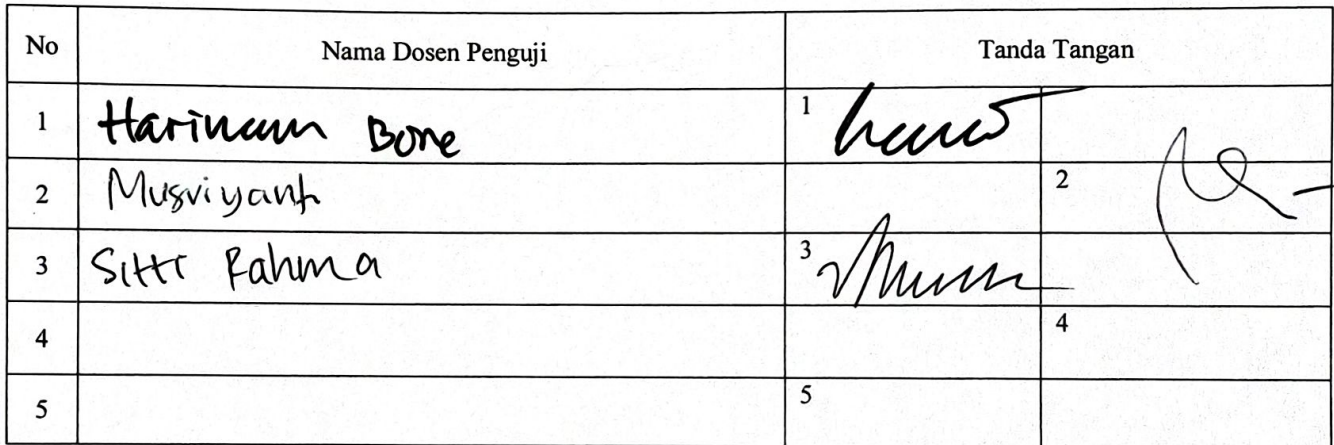 No Nama Dosen Penguji Tanda Tangan
1 Bone 1
2 Musviyanti 2
3 Sitti Rahma 3
4 4
5 5